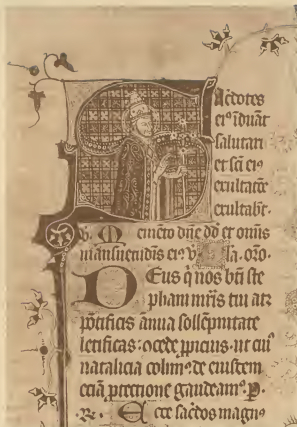 Acdotes
ei⁹ īduāt
salutari
et scī ei⁹
exultatōe
exultabt̄.
v. Memēto dn̄e dd̄ et omīs
mansuetudīs ei⁹ v̄ oro.
Deus q nos bt̄i ste
phani mr̄is tui atꝫ
pōtificis annua sollēpnitate
letificas: ꝯcede ꝓpicius. ut cui⁹
natalicia colim⁹ de eiusdem
eciā ꝓtectione gaudeam⁹. p.
R. Ecce sac̄dos magn⁹